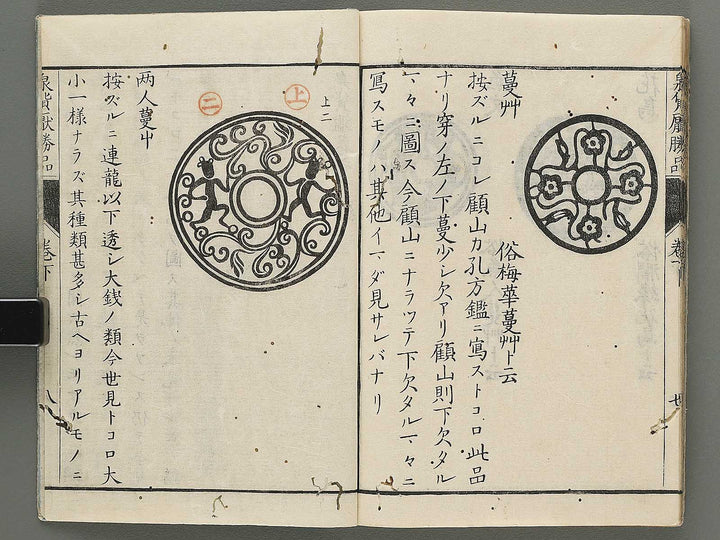 泉貨厭勝品 卷下
蔓艸
俗梅華蔓艸ト云
按ズルニコレ顧山カ孔方鑑ニ寫ストコロ此品
ナリ穿ノ左ノ下蔓少シ欠アリ顧山則下欠タル
マヽニ圖ス今顧山ニナラツテ下欠タルマヽニ
寫スモノハ其他イマダ見サレバナリ
上二
上
二
两人蔓艸
按ズルニ連龍以下透シ大銭ノ類今世見トコロ大
小一様ナラズ其種類甚多シ古ヘヨリアルモノニ
泉貨厭勝品 卷下 八